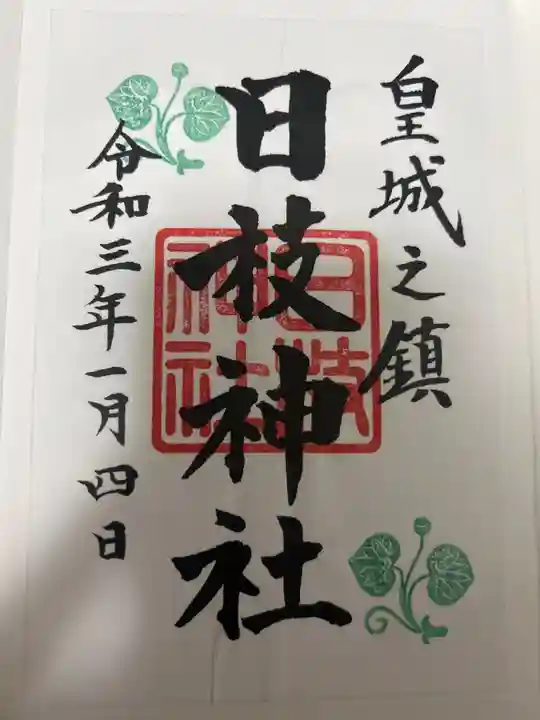 皇城之鎮
日枝神社
日枝
神社
令和三年一月四日